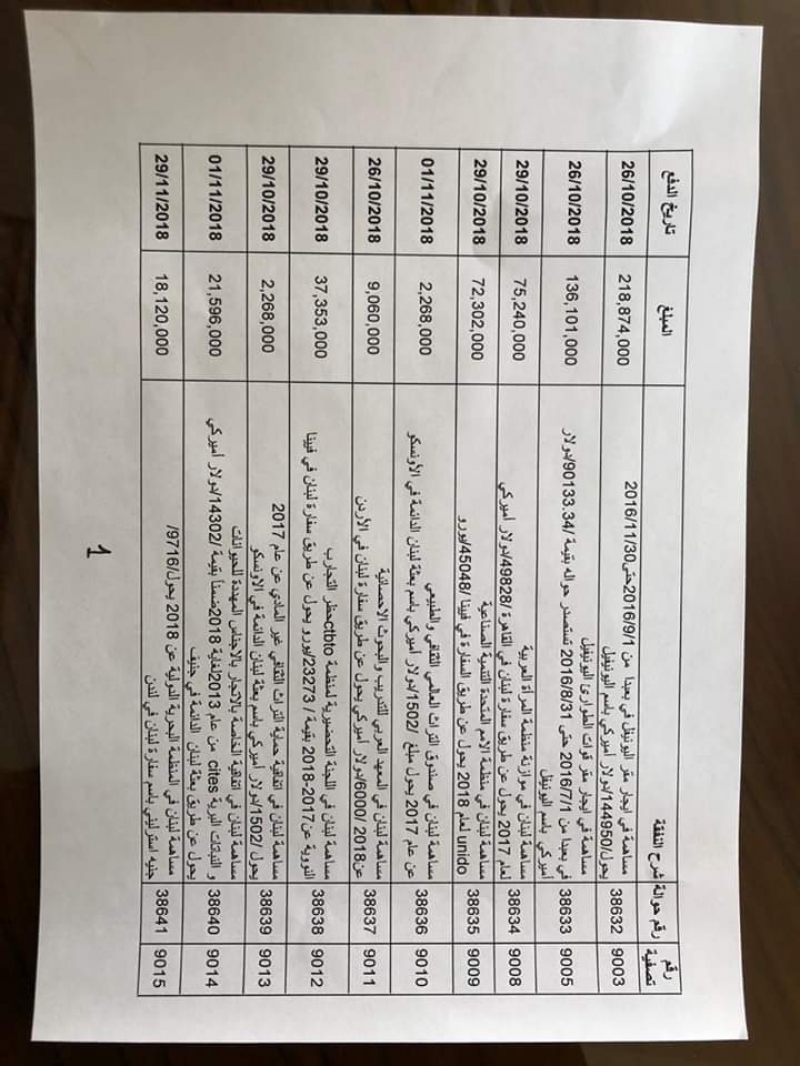 رقم تصفية رقم حوالة شرح النفقة المبلغ تاريخ الدفع
9003 38632 مساهمة في ايجار مقر اليونيفل في بعبدا من 2016/9/1حتى2016/11/30
يحول/144950/دولار أميركي باسم اليونيفيل 218,874,000 26/10/2018
9005 38633 مساهمة في ايجار مقر قوات الطوارئ اليونيفيل
في بعبدا من 2016/7/1 حتى 2016/8/31 تستصدر حواله بقيمة /90133.34/دولار
أميركي باسم اليونيفل 136,101,000 26/10/2018
9008 38634 مساهمة لبنان في موازنة منظمة المرأة العربية
لعام 2017 يحول عن طريق سفارة لبنان في القاهرة /49828/دولار أميركي 75,240,000 29/10/2018
9009 38635 مساهمة لبنان في منظمة الامم المتحدة التنمية الصناعية
unido لعام 2018 يحول عن طريق السفارة في فيينا /45048/يورو 72,302,000 29/10/2018
9010 38636 مساهمة لبنان في صندوق التراث العالمي الثقافي والطبيعي
عن عام 2017 يحول مبلغ /1502/دولار أميركي باسم بعثة لبنان الدائمة في الأونسكو 2,268,000 01/11/2018
9011 38637 مساهمة لبنان في المعهد العربي للتدريب والبحوث الاحصائية
عن2018 /6000/دولار أميركي يحول عن طريق سفارة لبنان في الأردن 9,060,000 26/10/2018
9012 38638 مساهمة لبنان في اللجنة التحضيرية لمنظمة ctbtoحظر التجارب
النووية عن2017-2018 بقيمة / 23273/يورو يحول عن طريق سفارة لبنان في فيينا 37,353,000 29/10/2018
9013 38639 مساهمة لبنان في اتفاقية حماية التراث الثقافي غير المادي عن عام 2017
يحول /1502/دولار أميركي باسم بعثة لبنان الدائمة في الاونسكو 2,268,000 29/10/2018
9014 38640 مساهمة لبنان في اتفاقية الخاصة بالاتجار بالاجناس المهددة للحيوانات
و النباتات البرية cites من عام 2013لغاية 2018ضمنا بقيمة /14302/دولار أميركي
يحول عن طريق بعثة لبنان الدائمة في جنيف 21,596,000 01/11/2018
9015 38641 مساهمة لبنان في المنظمة البحرية الدولية عن 2018 يحول/9716/
جنيه استرليني باسم سفارة لبنان في لندن 18,120,000 29/11/2018
1